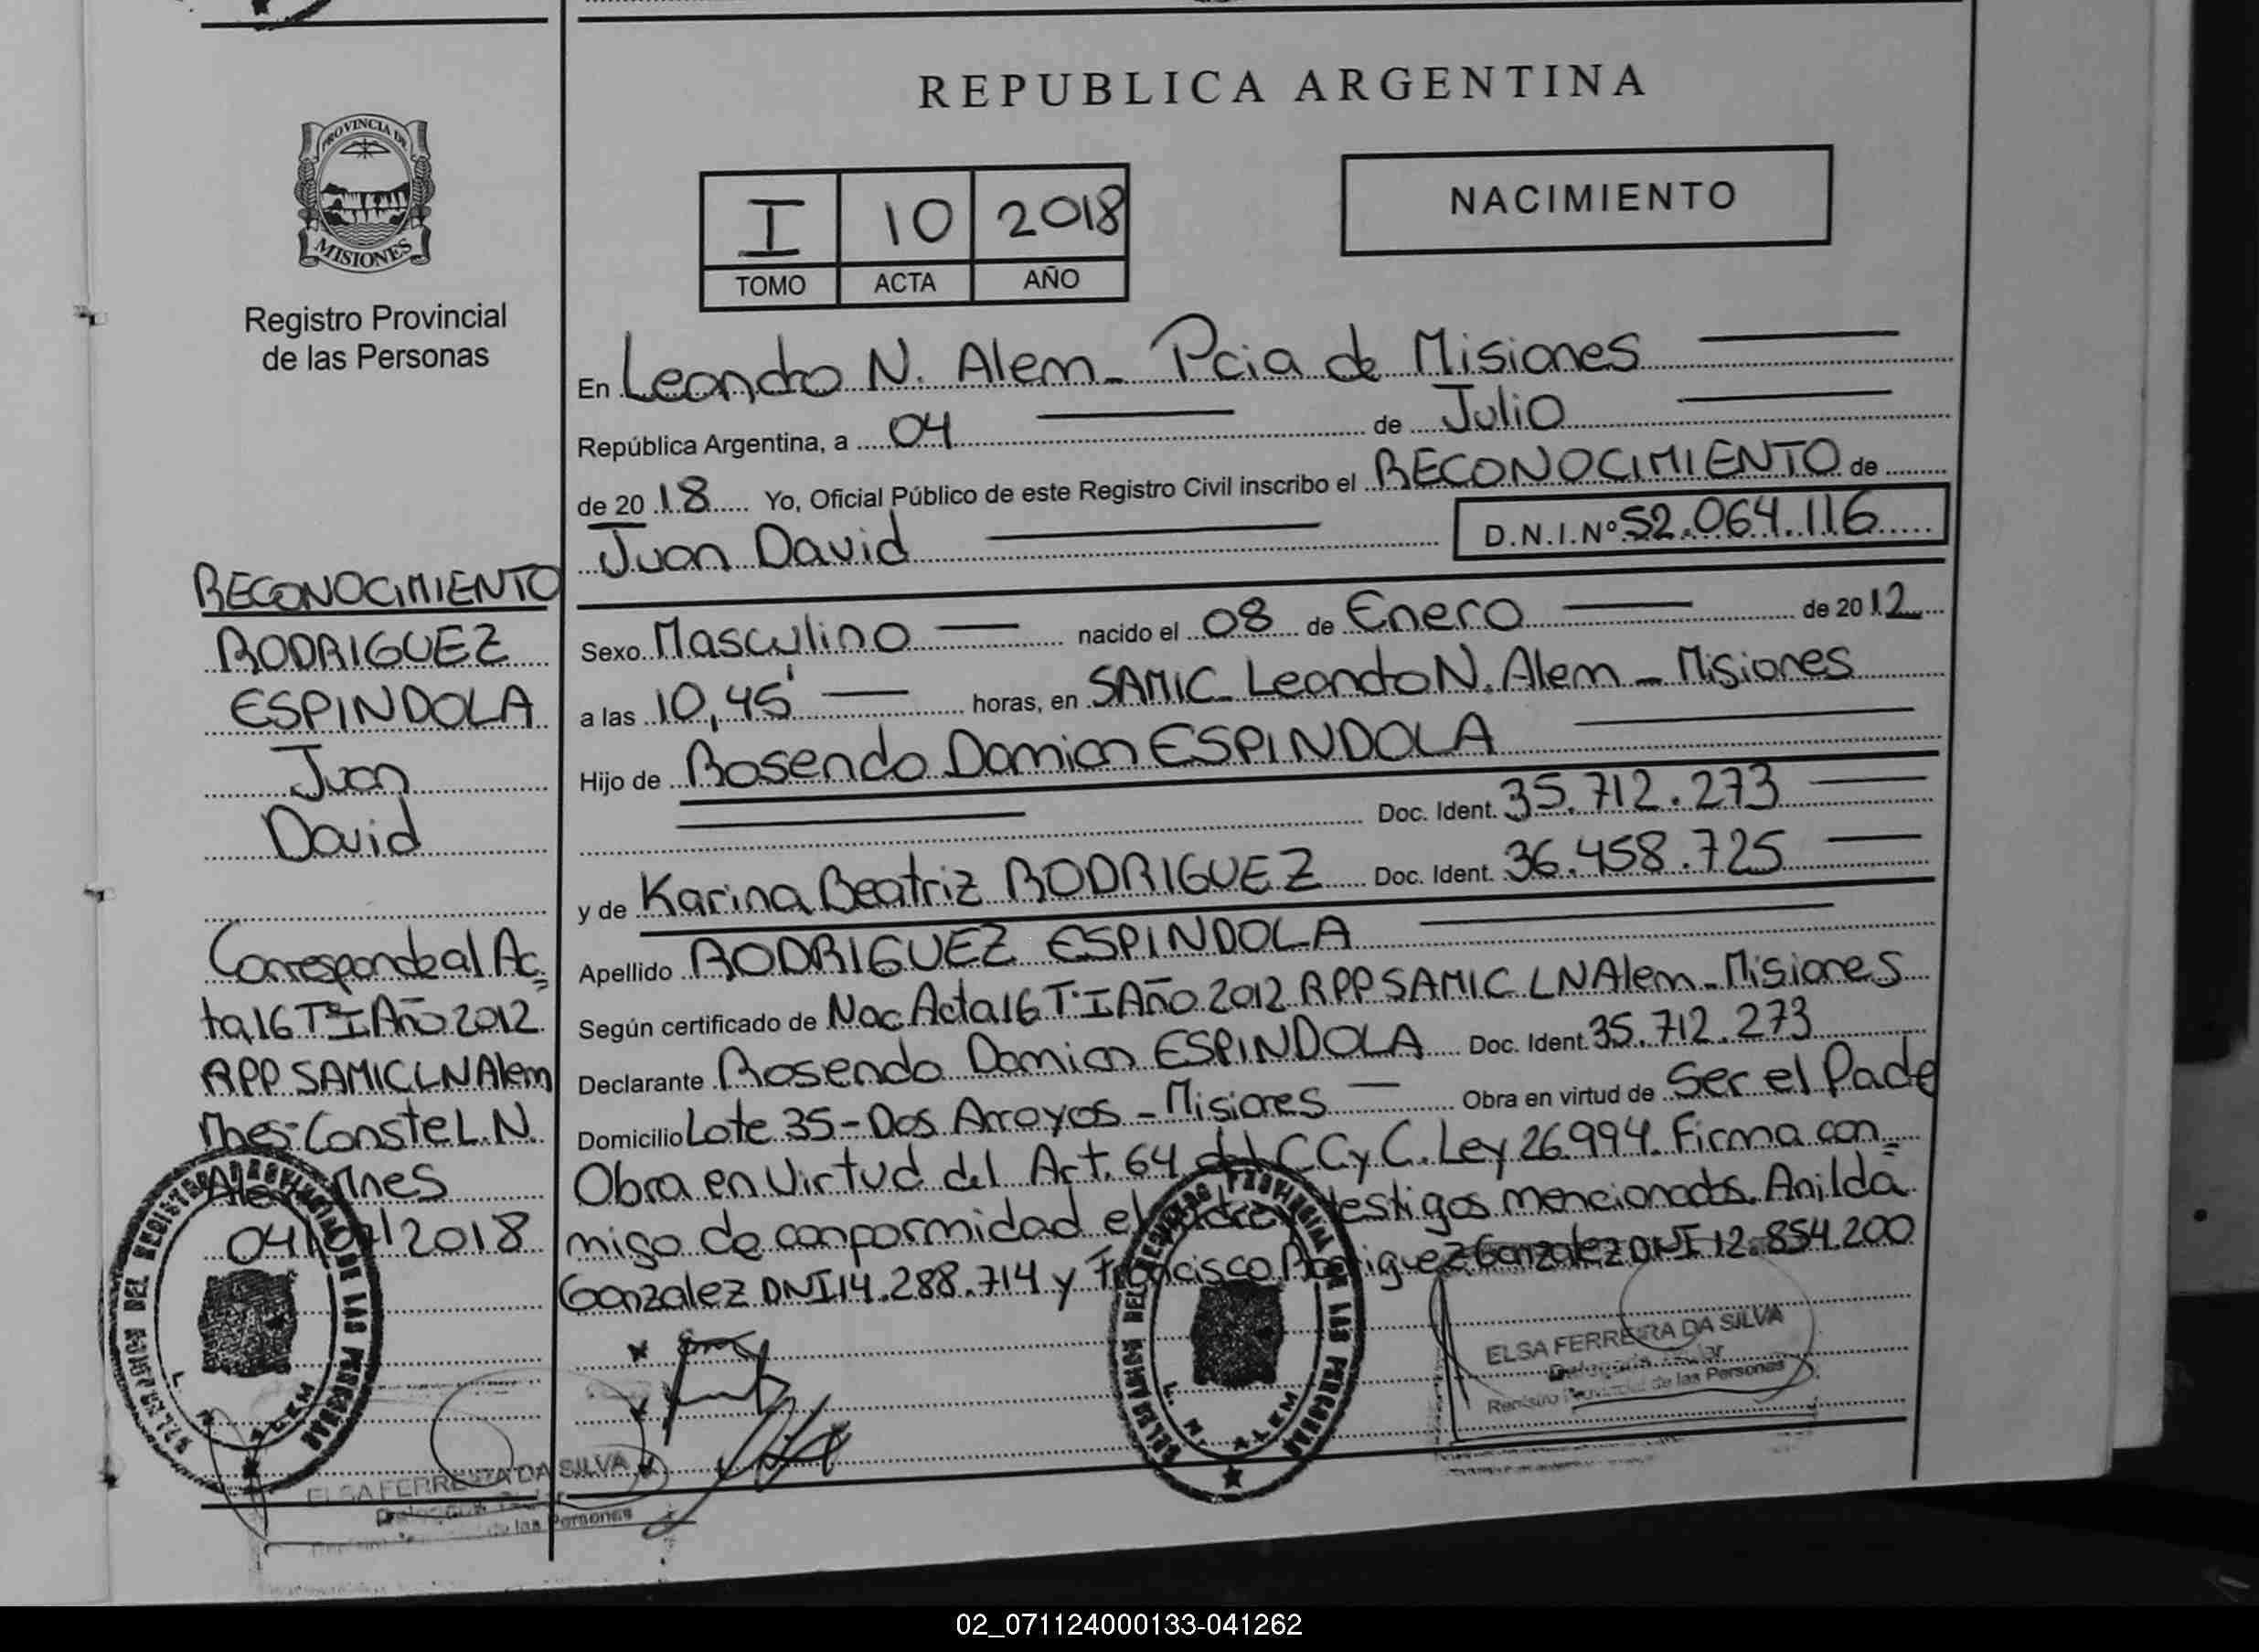 REPUBLICA ARGENTINA
PROVINCIA DE
MISIONES
Registro Provincial
de las Personas
I 10 2018
TOMO ACTA AÑO
NACIMIENTO
En Leandro N. Alem - Pcia de Misiones
República Argentina, a 04 de Julio
de 20 18 Yo, Oficial Público de este Registro Civil inscribo el RECONOCIMIENTO de
Juan David D.N.I.Nº 52.064.116
Sexo Masculino nacido el 08 de Enero de 20 12
a las 10,45' horas, en SAMIC - Leandro N. Alem - Misiones
Hijo de Rosendo Damian ESPINDOLA
Doc. Ident. 35.712.273
y de Karina Beatriz RODRIGUEZ Doc. Ident. 36.458.725
Apellido RODRIGUEZ ESPINDOLA
Según certificado de Nac Acta 16 Tº I Año 2012 RPP SAMIC LN Alem - Misiones
Declarante Rosendo Damian ESPINDOLA Doc. Ident. 35.712.273
Domicilio Lote 35 - Dos Arroyos - Misiones Obra en virtud de Ser el Padre
Obra en Virtud del Art. 64 del C C y C. Ley 26.994. Firma con=
migo de conformidad el testigos mencionados. Anilda
Gonzalez DNI 14.288.714 y Francisco Rodriguez Gonzalez DNI 12.854.200
RECONOCIMIENTO
RODRIGUEZ
ESPINDOLA
Juan
David
Corresponde al Ac=
ta 16 Tº I Año 2012
RPP SAMIC LN Alem
Mnes- Conste L.N.
Alem Mnes
04/07/2018
REGISTRO PROVINCIAL DE LAS PERSONAS
L. N. ALEM
ELSA FERREIRA DA SILVA
de las Personas
REGISTRO PROVINCIAL DE LAS PERSONAS
L. N. ALEM
ELSA FERREIRA DA SILVA
Registro Provincial de las Personas
02_071124000133-041262